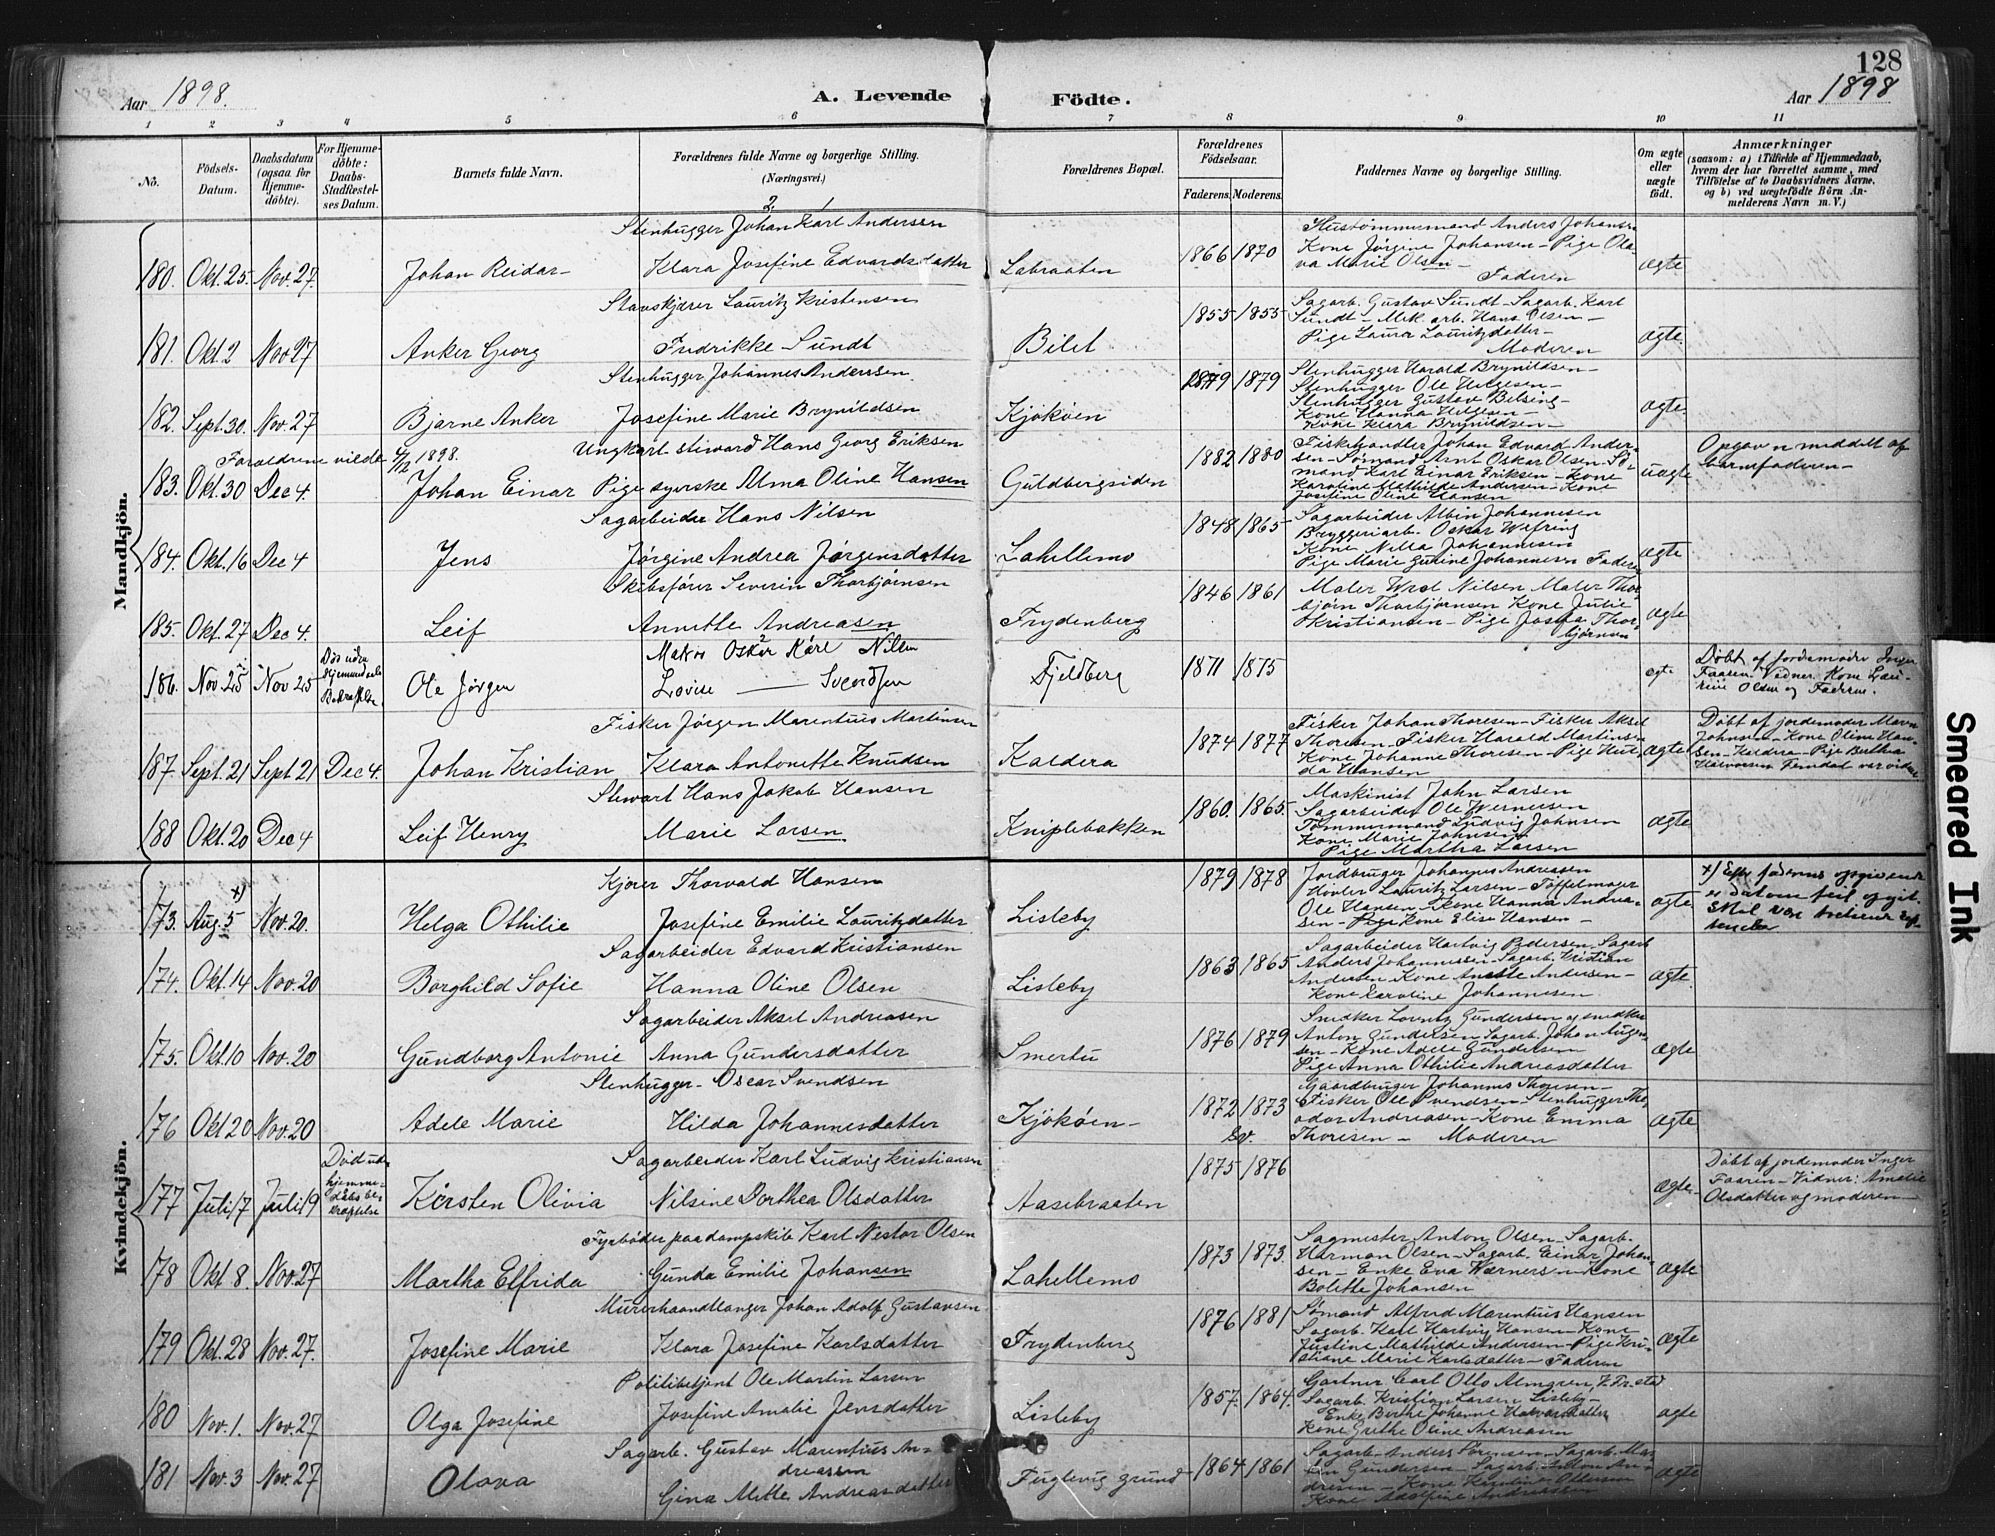 128
Aar 1898.
A. Levende
Födte.
Aar 1898
1 2 3 4 5 6 7 8 9 10 11
No.
Födsels-
Datum.
Daabsdatum
(ogsaa for
Hjemme-
döbte).
For Hjemme-
döbte:
Daabs-
Stadfæstel-
ses Datum.
Barnets fulde Navn.
Forældrenes fulde Navne og borgerlige Stilling.
(Næringsvei.)
Forældrenes Bopæl.
Forældrenes
Födselsaar.
Faderens. Moderens.
Faddernes Navne og borgerlige Stilling.
Om ægte
eller
uægte
födt.
Anmærkninger
(saasom: a) i Tilfælde af Hjemmedaab,
hvem der har forrettet samme, med
Tilföielse af to Daabsvidners Navne,
og b) ved uægtefödte Börn An-
melderens Navn m. V.)
Mandkjön.
2. 1
Stenhugger Johan Karl Andersen
180. Okt. 25. Nov. 27. Johan Reidar Klara Josefine Edvardsdatter Labraaten 1866 1870 ægte
Hustømmermand Anders Johansen
Kone Jørgine Johansen - Pige Ola-
va Marie Olsen -
Faderen
Stavskjærer Lauritz Kristensen
181. Okt. 2 Nov 27 Anker Georg Fredrikke Sundt Bilet 1855 1855 ægte.
Sagarb. Gustav Sundt - Sagarb. Karl
Sundt - Mek. arb. Hans Olsen -
Pige Laura Lauritzdatter -
Moderen
Stenhugger Johannes Anderssen.
182. Sept. 30. Nov. 27 Bjarne Anker Josefine Marie Brynildsen Kjøkøen 1879 1879 ægte.
Stenhugger Harald Brynildsen -
Stenhugger Ole Helgesen -
Stenhugger Gustav Belsing -
Kone Hanna Helgesen -
Kone Klara Brynildsen -
Forældrene viede 4/12 1898.
Ungkarl stiward Hans Georg Eriksen
183. Okt. 30 Dec 4. Johan Einar Pige syerske Alma Oline Hansen Guldbergsiden 1882 1880 uægte
Fiskehandler Johan Edvard Ander-
sen - Sømand Arnt Oskar Olsen - Sø-
mand Karl Einar Eriksen - Kone
Karoline Mathilde Andersen - Kone
Josefine Oline Hansen
Opgaven meddelt af
barnefaderen -
Sagarbeider Hans Nilsen
184. Okt. 16 Dec 4 Jens Jørgine Andrea Jørgensdatter Lahellemo 1848 1865 ægte
Sagarbeider Albin Johannesen
Bryggeriarb. Oskar Wefring
Kone Nilla Johannesen
Pige Marie Gurine Johannesen Faderen
Skibsfører Severin Thorbjørnsen
185. Okt. 27 Dec 4. Leif Annette Andreasen Frydenberg 1846 1861 ægte
Maler Wral Nilsen Maler Thor-
bjørn Thorbjørnsen Kone Julie
Kristiansen - Pige Josefa Thor-
bjørnsen
186. Nov. 25 Nov 25 Ole Jørgen Oskar Karl Nilsen
Lovise Fjeldberg 1871 1875 ægte
Døbt af jordemoder Inger
Faaren Vidner. Kone Lau-
rine Olsen og Faderen.
Fisker Jørgen Marentius Martinsen
187. Sept. 21 Sept 21 Dec 4. Johan Kristian Klara Antonette Knudsen Kaldera 1874 1877 ægte
Fisker Johan Thoresen - Fisker Aksel
Thoresen - Fisker Harald Martinsen
Kone Johanne Thoresen - Pige Hul-
da Hansen
Døbt af jordemoder Maren
Johnsen - Kone Oline Han-
sen - Kaldera - Pige Bertha
Halvorsen Femdal var vidner
Stewart Hans Jakob Hansen
188 Okt. 20 Dec 4 Leif Henry Marie Larsen Kniplebakken 1860. 1865. ægte
Maskinist John Larsen
Sagarbeider Ole Wernersen
Tømmermand Ludvig Johnsen
Kone Marie Johnsen
Pige Martha Larsen
Kvindekjön.
Kjører Thorvald Hansen
173. Aug. 5 x) Nov. 20. Helga Othilie Josefine Emilie Lauritzdatter Lisleby 1879 1878 ægte
Jordbruger Johannes Andreasen
Høvler Lauritz Larsen - Tøffelmager
Ole Hansen - Kone Hanna Andrea-
sen - Kone Elise Hansen -
x) Efter faderens opgivende
er datoen feil opgit.
Sagarbeider Edvard Kristiansen
174. Okt. 14 Nov. 20 Borghild Sofie Hanna Oline Olsen Lisleby 1863 1865 ægte.
Sagarbeider Hartvig Pedersen - Sagarb
Anders Johannessen - Sagarb. Kristian
Andersen - Kone Anette Andersen -
Kone Karoline Johannesen
Sagarbeider Aksel Andreasen
175. Okt. 10 Nov. 20 Gundborg Antonie Anna Gundersdatter Smertu 1876 1879 ægte
Snedker Lorentz Gundersen og snedker
Anton Gundersen Sagarb. Johan Augen-
sen - Kone Adele Gundersen
Pige Anna Othilie Andreasdatter
Stenhugger - Oscar Svendsen
176 Okt 20 Nov. 20 Adele Marie Hilda Johannesdatter Kjøkøen - 1872 1873 ægte
Gaardbruger Johannes Thoresen -
Fisker Ole Svendsen - Stenhugger The-
odor Andreasen - Kone Emma
Thoresen - Moderen
Sagarbeider Karl Ludvig Kristiansen
177 Juli 17 Juli 19 Død uden
hjemme-
daabs be-
kræftelse Kirsten Olivia Nilsine Dorthea Olsdatter Aasebraaten 1875 1876 ægte.
Døbt af jordemoder Inger
Faaren - Vidner: Amalie
Olsdatter og moderen -
Fyrbøder paa dampskib Karl Nestor Olsen
178 Okt. 8. Nov. 27 Martha Elfrida Gunda Emilie Johansen Lahellemo 1873 1873. ægte
Sagmester Anton Olsen - Sagarb.
Herman Olsen - Sagarb. Einar Johan-
sen - Enke Eva Wærnersen - Kone
Bolette Johansen
Murerhaandlanger Johan Adolf Gustavsen
179 Okt. 28 Nov. 27. Josefine Marie Klara Josefine Karlsdatter Frydenberg 1876 1881 ægte
Sømand Alfred Marentius Hansen
Sagarb. Karl Hartvig Hansen - Kone
Justine Mathilde Andersen - Pige Kri-
stiane Marie Karlsdatter - Faderen
Politibetjent Ole Martin Larsen
180 Nov. 1. Nov. 27 Olga Josefine Josefine Amalie Jensdatter Lisleby 1857. 1864. ægte
Gartner Carl Otto Almgren,
Sagarb. Kristian Larsen Lisleby -
Enke Berthe Johanne Halvorsdatter
Kone Grethe Oline Andreasen
Sagarb. Gustav Marentius An-
dreassen
181 Nov. 3 Nov. 27 Olava Gina Mette Andreasdatter Fuglevig grund 1864 1861 ægte
Sagarb. Anders Sørensen - Sagarb. Mar-
tin Gundersen - Sagarb. Anton An-
dresen - Kone
Kone Adolfine Andreassen
Smeared Ink